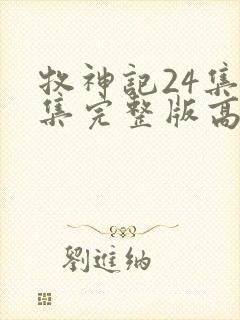 牧神記24集
集完整版高
劉進納